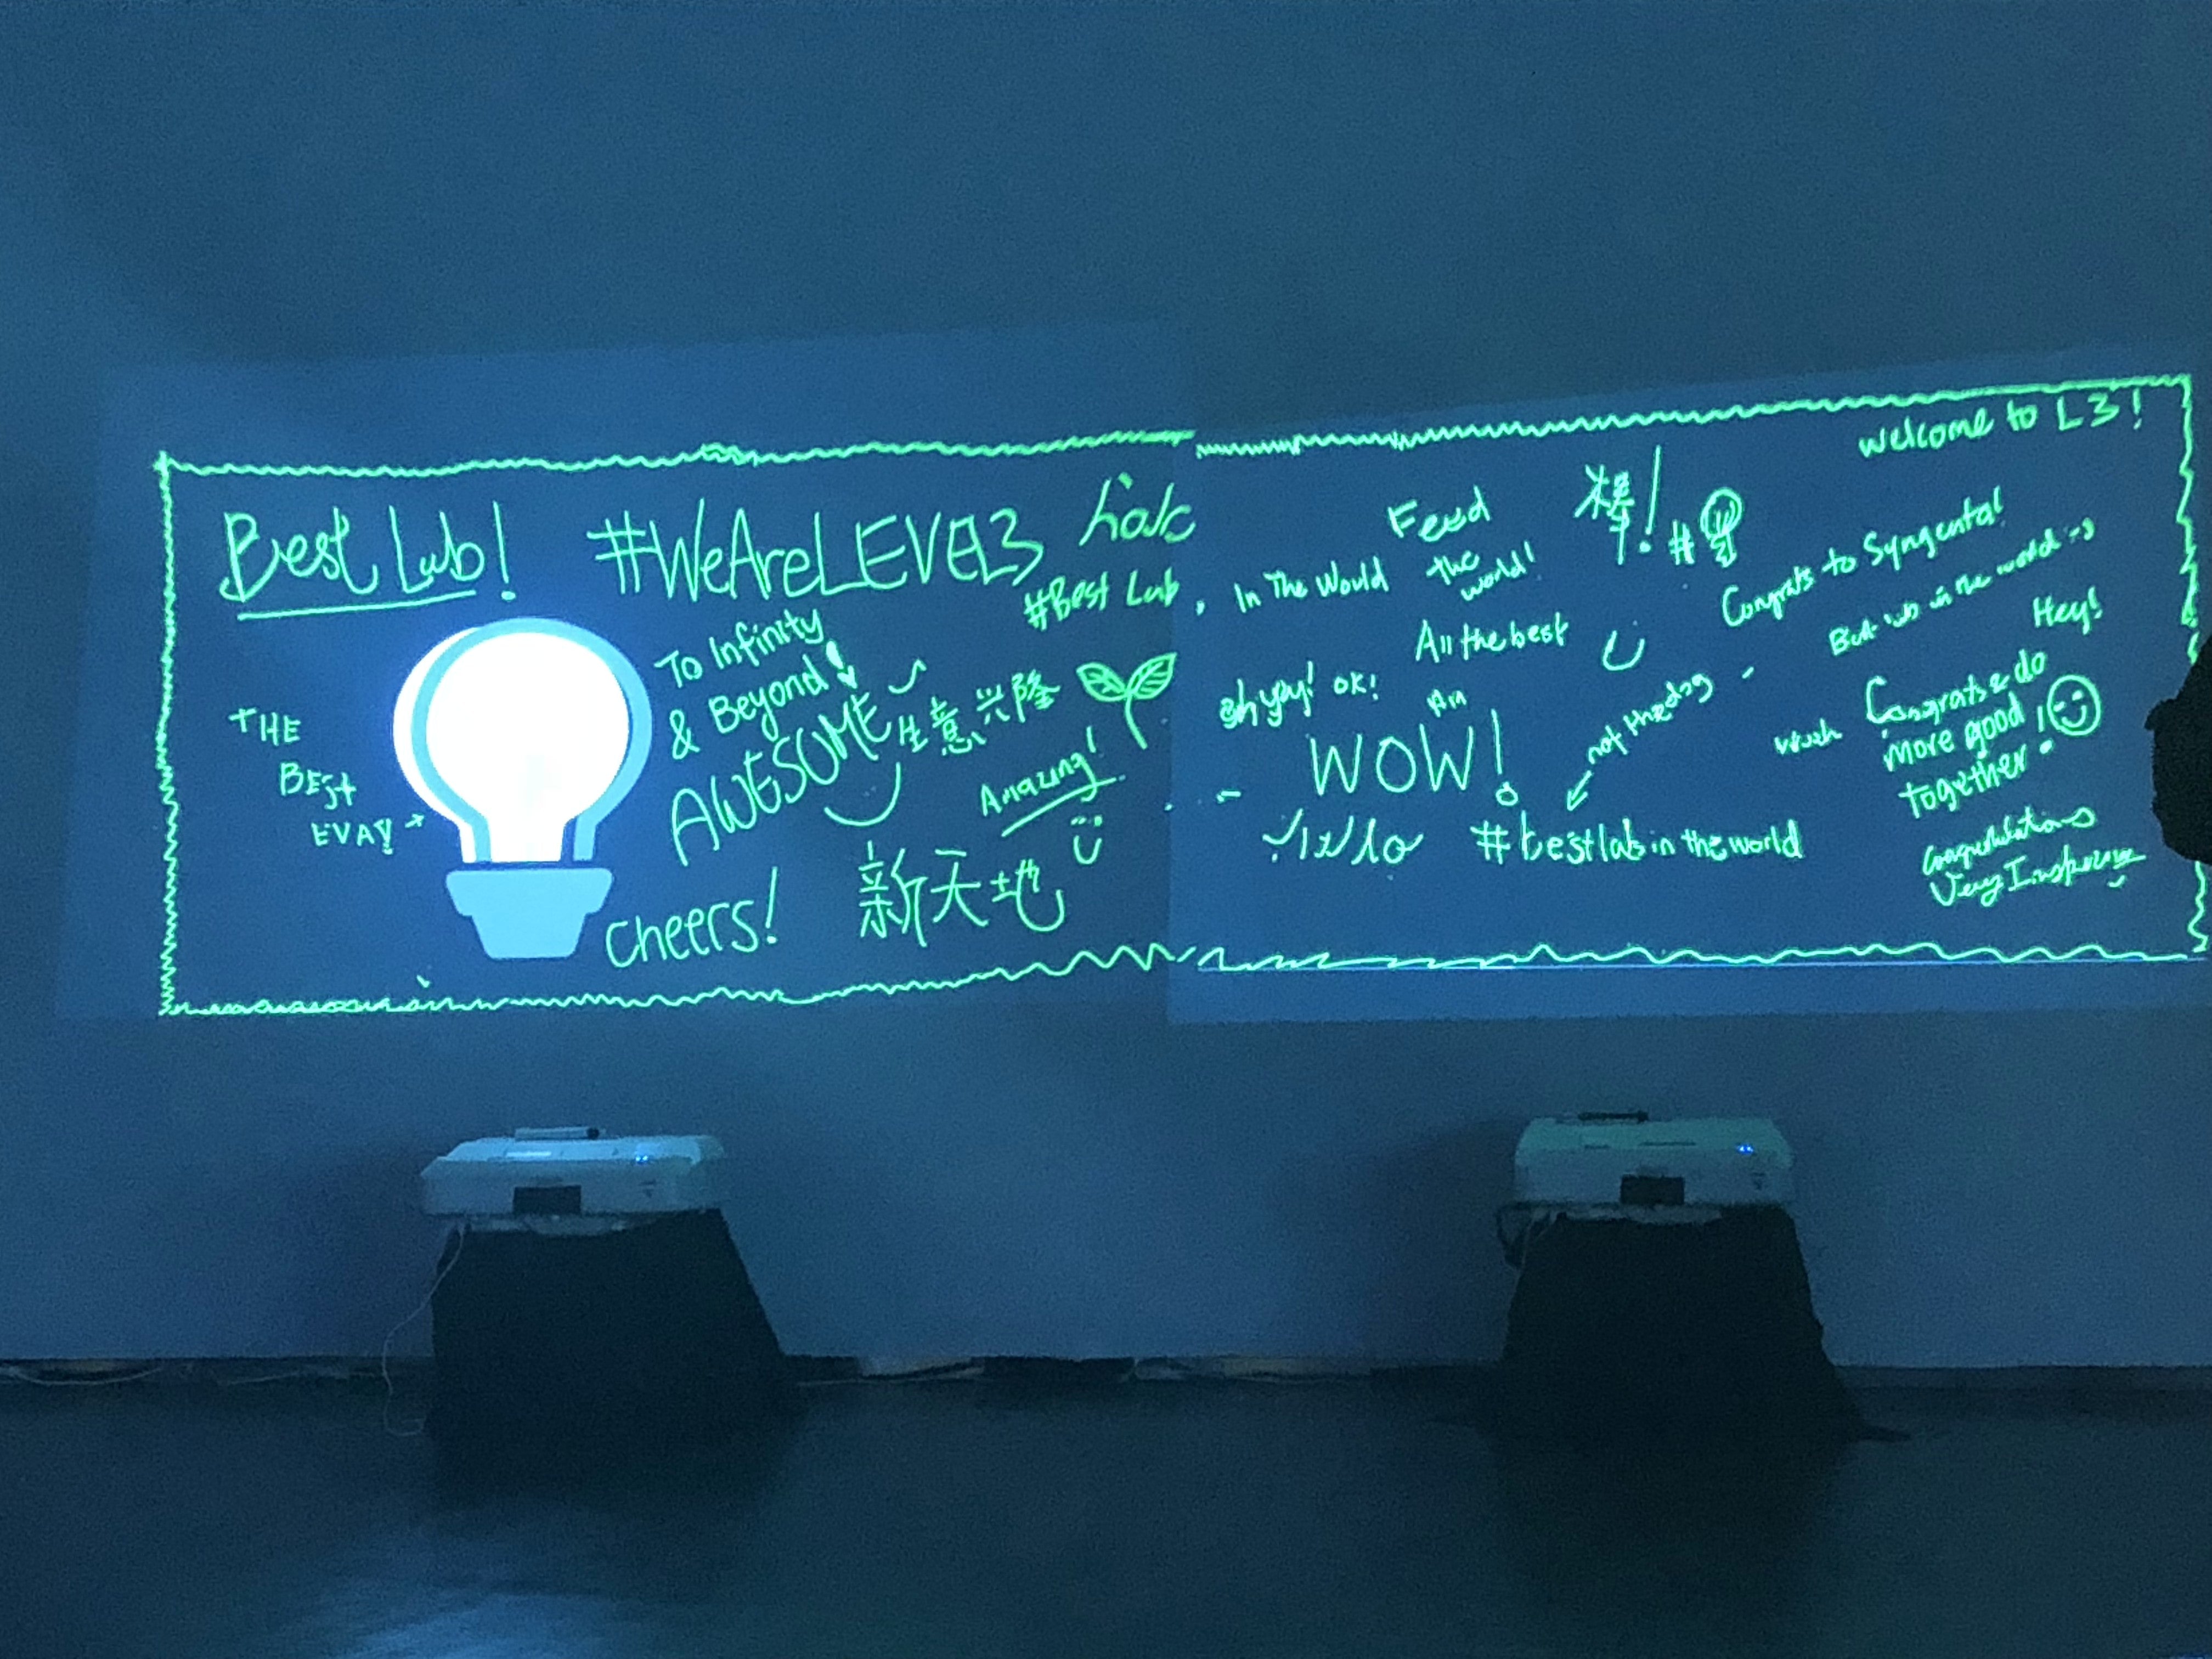 Best Lab!
#WeAreLEVEL3
#Best Lab
To Infinity
& Beyond!
AWESOME
生意兴隆
THE
BEST
EVA!
Amazing!
Cheers!
新天地
In The World
Feed
the
world!
棒!
#
welcome to L3!
Congrats to Syngenta!
in the world
Hey!
All the best
oh yay! OK!
WOW!
not the dog
#bestlab in the world
Congrats & do
more good
together!
Congratulations
Very Inspiring